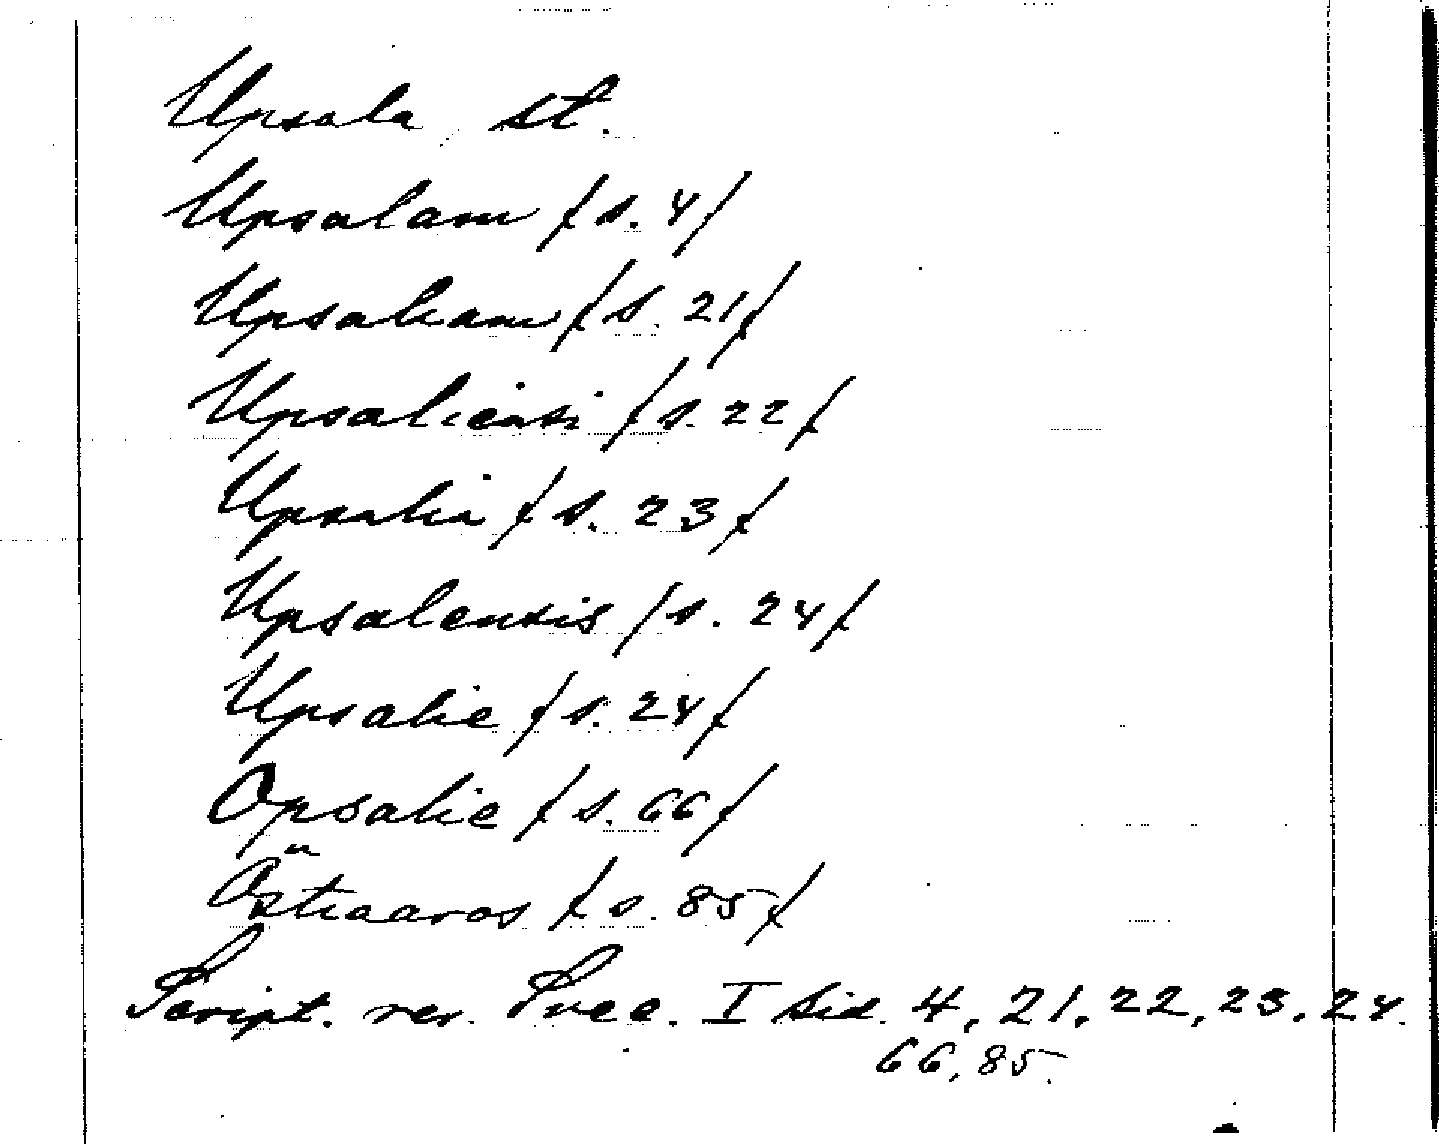 Upsala st.
Upsalam /s. 4/
Upsaliam /s. 21/
Upsaliensi /s. 22/
Upsalia /s. 23/
Upsalensis /s. 24/
Upsalie /s. 24/
Opsalie /s. 66/
Östraaros /s. 85/
Script. rer. Svec. I sid. 4, 21, 22, 23, 24.
66, 85.